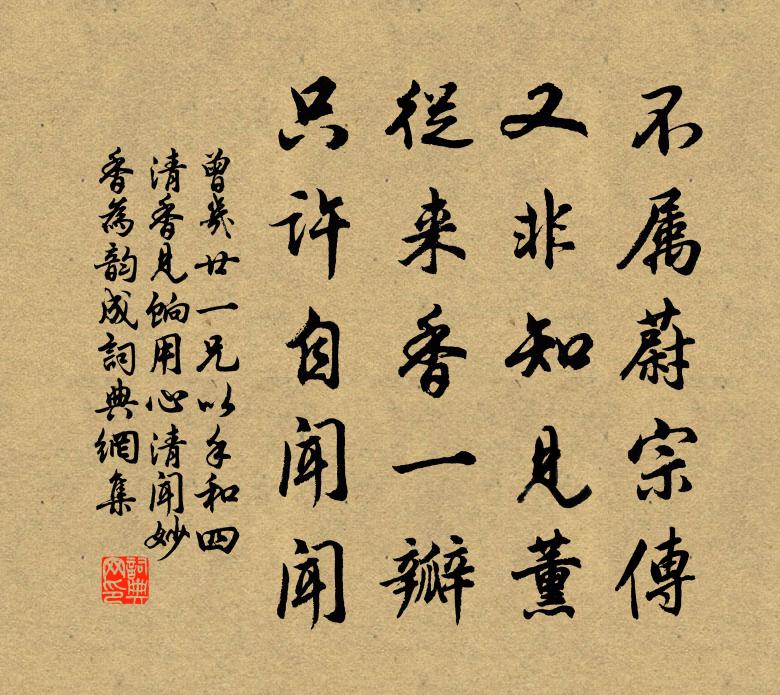 不属蔚宗傳
又非知見薰
從来香一瓣
只许自闻闻
曾幾廿一兄以手和四
清香見餉用心清闻妙
香為韵成詞典網集
詞典网印